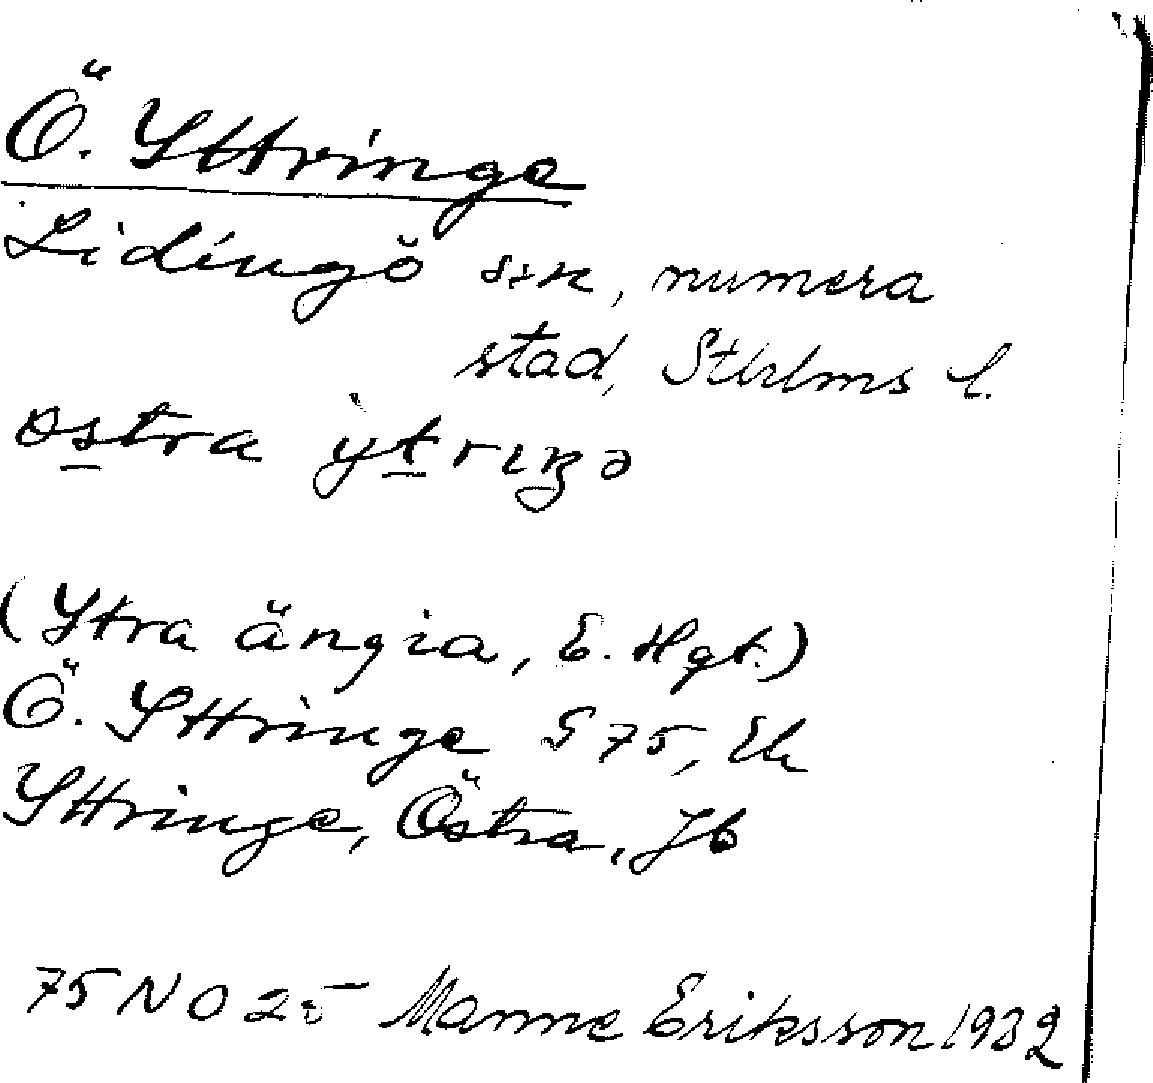 Ö. Yttringe
Lidingö skn, numera
stad, Sthlms l.
ostra ỳtrıŋə
(Ytra ängia, E. Hgt.)
Ö. Yttringe S 75, Ek
Yttringe, Östra, Jb
75 NO 25 Manne Eriksson 1932